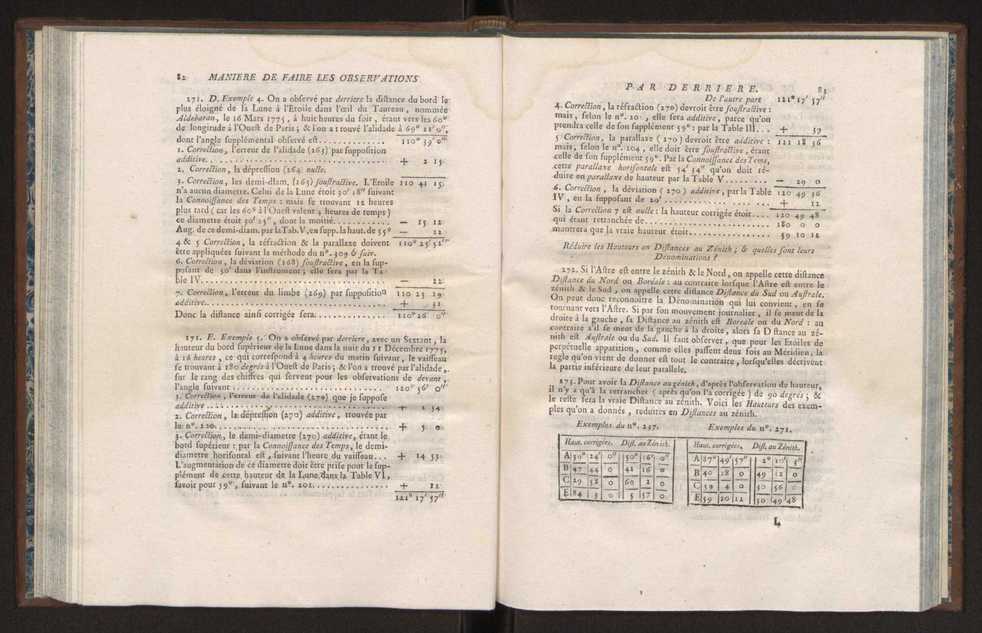 82 MANIERE DE FAIRE LES OBSERVATIONS
271. D. Exemple 4. On a observé par derriere la distance du bord le
plus éloigné de la Lune à l'Etoile dans l'œil du Taureau, nommée
Aldebaran, le 16 Mars 1775, à huit heures du soir, étant vers les 60°
de longitude à l'Ouest de Paris; & l'on a trouvé l'alidade à 69° 21′ 0″,
dont l'angle supplémental observé est.............. 110° 39′ 0″
1. Correction, l'erreur de l'alidade (265) par supposition
additive................................ + 2 15
2. Correction, la dépression (264) nulle.
3. Correction, les demi-diam. (265) soustractive. L'Etoile 110 41 15
n'a aucun diametre. Celui de la Lune étoit 30′ 18″ suivant
la Connoissance des Temps: mais se trouvant 12 heures
plus tard (car les 60° à l'Ouest valent 4 heures de temps)
ce diametre étoit 30′ 25″, dont la moitié.......... — 15 12
Aug. de ce demi-diam. par la Tab. V, en supp. la haut. de 55° — 12
4 & 5 Correction, la réfraction & la parallaxe doivent 110° 25′ 51″
être appliquées suivant la méthode du n°. 309 & suiv.
6. Correction, la déviation (268) soustractive, en la sup-
posant de 30′ dans l'instrument; elle sera par la Ta-
ble IV................................ — 22
7. Correction, l'erreur du limbe (269) par supposition 110 25 29
additive................................ + 31
Donc la distance ainsi corrigée sera.............. 110° 26′ 0″
271. E. Exemple 5. On a observé par derriere, avec un Sextant, la
hauteur du bord supérieur de la Lune dans la nuit du 11 Décembre 1775,
à 16 heures, ce qui correspond à 4 heures du matin suivant, le vaisseau
se trouvant à 180 degrés à l'Ouest de Paris; & l'on a trouvé par l'alidade,
sur le rang des chiffres qui servent pour les observations de devant,
l'angle suivant............................ 120° 56′ 0″
1. Correction, l'erreur de l'alidade (270) que je suppose
additive................................ + 1 34
2. Correction, la dépression (270) additive, trouvée par
le n°. 120................................ + 5 0
3. Correction, le demi-diametre (270) additive, étant le
bord supérieur: par la Connoissance des Temps, le demi-
diametre horisontal est, suivant l'heure du vaisseau... + 14 53
L'augmentation de ce diametre doit être prise pour le sup-
plément de cette hauteur de la Lune dans la Table VI,
savoir pour 59°, suivant le n°. 202............. + 12
121° 17′ 57″
PAR DERRIERE. 83
De l'autre part 121° 17′ 57″
4. Correction, la réfraction (270) devroit être soustractive:
mais, selon le n°. 201, elle sera additive, parce qu'on
prendra celle de son supplément 59°: par la Table III... + 59
5 Correction, la parallaxe (270) devroit être additive: 121 18 56
mais, selon le n°. 204, elle doit être soustractive, étant
celle de son supplément 59°. Par la Connoissance des Tems,
cette parallaxe horisontale est 54′ 54″ qu'on doit ré-
duire en parallaxe de hauteur par la Table V........ — 29 0
6. Correction, la déviation (270) additive, par la Table 120 49 56
IV, en la supposant de 20′................... + 12
Si la Correction 7 est nulle: la hauteur corrigée étoit.... 120 49 48
qui étant retranchée de..................... 180 0 0
montrera que la vraie hauteur étoit.............. 59 10 12
Réduire les Hauteurs en Distances au Zénith; & quelles sont leurs
Dénominations?
272. Si l'Astre est entre le zénith & le Nord, on appelle cette distance
Distance du Nord ou Boréale: au contraire lorsque l'Astre est entre le
zénith & le Sud, on appelle cette distance Distance du Sud ou Australe.
On peut donc reconnoître la Dénomination qui lui convient, en se
tournant vers l'Astre. Si par son mouvement journalier, il se meut de la
droite à la gauche, sa Distance au zénith est Boréale ou du Nord: au
contraire s'il se meut de la gauche à la droite, alors sa Distance au zé-
nith est Australe ou du Sud. Il faut observer, que pour les Etoiles de
perpétuelle apparition, comme elles passent deux fois au Méridien, la
regle qu'on vient de donner est tout le contraire, lorsqu'elles décrivent
la partie inférieure de leur parallele.
273. Pour avoir la Distance au zénith, d'après l'observation de hauteur,
il n'y a qu'à la retrancher (après qu'on l'a corrigée) de 90 degrés; &
le reste sera la vraie Distance au zénith. Voici les Hauteurs des exem-
ples qu'on a donnés, réduites en Distances au zénith.
Exemples du n°. 257. Exemples du n°. 271.
Haut. corrigées. Dist. au Zénith. Haut. corrigées. Dist. au Zénith.
A 30° 24′ 0″ 50° 16′ 0″ A 87° 49′ 57″ 2° 10′ 3″
B 47 44 0 42 16 0 B 40 28 0 49 32 0
C 29 58 0 60 2 0 C 39 4 0 50 56 0
E 84 3 0 5 57 0 E 59 20 12 30 49 48
L